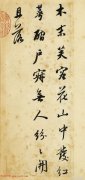 木末芙蓉花山中發紅
萼澗戶寂無人紛紛開
且落